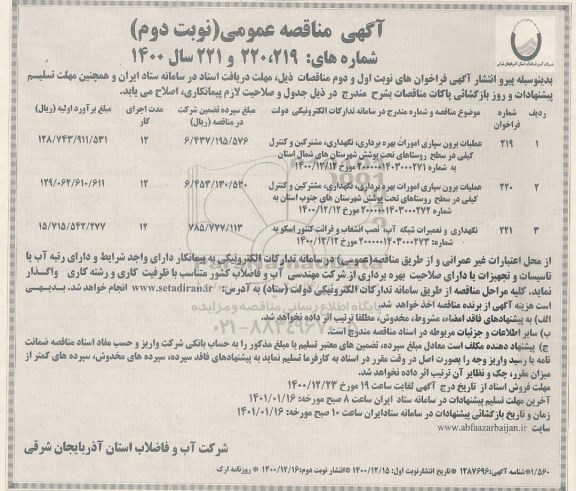 آگهی مناقصه عمومی(نوبت دوم)
شماره های: ۲۲۰،۲۱۹ و ۲۲۱ سال ۱۴۰۰
بدینوسیله پیرو انتشار آگهی فراخوان های نوبت اول و دوم مناقصات ذیل، مهلت دریافت اسناد در سامانه ستاد ایران و همچنین مهلت تسلیم
پیشنهادات و روز بازگشائی پاکات مناقصات بشرح مندرج در ذیل جدول و صلاحیت لازم پیمانکاری، اصلاح می یابد.
ردیف شماره فراخوان موضوع مناقصه و شماره مندرج در سامانه تدارکات الکترونیکی دولت مبلغ سپرده تضمین شرکت در مناقصه (ریال) مدت اجرای کار مبلغ برآورد اولیه (ریال)
۱ ۲۱۹ عملیات برون سپاری امورات بهره برداری، نگهداری، مشترکین و کنترل ۶/۴۳۷/۱۹۵/۵۷۶ ۱۲ ۱۲۸/۷۴۳/۹۱۱/۵۳۱
کیفی در سطح روستاهای تحت پوشش شهرستان های شمال استان
به شماره ۲۰۰۰۰۰۱۴۰۳۰۰۰۲۷۱ مورخ ۱۴۰۰/۱۲/۱۲
۲ ۲۲۰ عملیات برون سپاری امورات بهره برداری، نگهداری، مشترکین و کنترل ۶/۴۵۳/۱۳۰/۵۳۰ ۱۲ ۱۲۹/۰۶۲/۶۱۰/۶۱۱
کیفی در سطح روستاهای تحت پوشش شهرستان های جنوب استان به
شماره ۲۰۰۰۰۰۱۴۰۳۰۰۰۲۷۲ مورخ ۱۴۰۰/۱۲/۱۲
۳ ۲۲۱ نگهداری و تعمیرات شبکه آب، نصب انشعاب و قرائت کنتور اسکو به ۷۸۵/۷۷۷/۱۱۳ ۱۲ ۱۵/۷۱۵/۵۴۲/۲۷۷
شماره: ۲۰۰۰۰۰۱۴۰۳۰۰۰۲۷۳ مورخ ۱۴۰۰/۱۲/۱۲
از محل اعتبارات غیر عمرانی و از طریق مناقصه(عمومی) در سامانه تدارکات الکترونیکی به پیمانکار دارای واجد شرایط و دارای رتبه آب یا
تاسیسات و تجهیزات یا دارای صلاحیت بهره برداری از شرکت مهندسی آب و فاضلاب کشور متناسب با ظرفیت کاری و رشته کاری واگذار
نماید. کلیه مراحل مناقصه از طریق سامانه تدارکات الکترونیکی دولت (ستاد) به آدرس: www.setadiran.ir انجام خواهد شد. بدیهی
است هزینه آگهی از برنده مناقصه اخذ خواهد شد.
الف) به پیشنهادهای فاقد امضاء، مشروط، مخدوش، مطلقا ترتیب اثر داده نخواهد شد.
ب) سایر اطلاعات و جزئیات مربوطه در اسناد مناقصه مندرج است.
ج) پیشنهاد دهنده مکلف است معادل مبلغ سپرده، تضمین های معتبر تسلیم یا مبلغ مذکور را به حساب بانکی شرکت واریز و حسب مفاد اسناد مناقصه ضمانت
نامه یا رسید واریز وجه را بصورت اصل در وقت مقرر در اسناد به کارفرما تسلیم نماید به پیشنهادهای فاقد سپرده، سپرده های مخدوش، سپرده های کمتر از
میزان مقرر، چک و نظایر آن ترتیب اثر داده نخواهد شد.
مهلت فروش اسناد از تاریخ درج آگهی لغایت ساعت ۱۹ مورخ ۱۴۰۰/۱۲/۲۳
آخرین مهلت تسلیم پیشنهادات در سامانه ستاد ایران ساعت ۸ صبح مورخه: ۱۴۰۱/۰۱/۱۶
زمان و تاریخ بازگشائی پیشنهادات در سامانه ستادایران ساعت ۱۰ صبح مورخه: ۱۴۰۱/۰۱/۱۶
سایت www.abfaazarbaijan.ir
شرکت آب و فاضلاب استان آذربایجان شرقی
۱/۵۶۰*شناسه آگهی: ۱۲۸۷۶۹۶*تاریخ انتشار نوبت اول: ۱۴۰۰/۱۲/۱۵*انتشار نوبت دوم: ۱۴۰۰/۱۲/۱۶*روزنامه ارک
پایگاه اطلاع رسانی مناقصه و مزایده